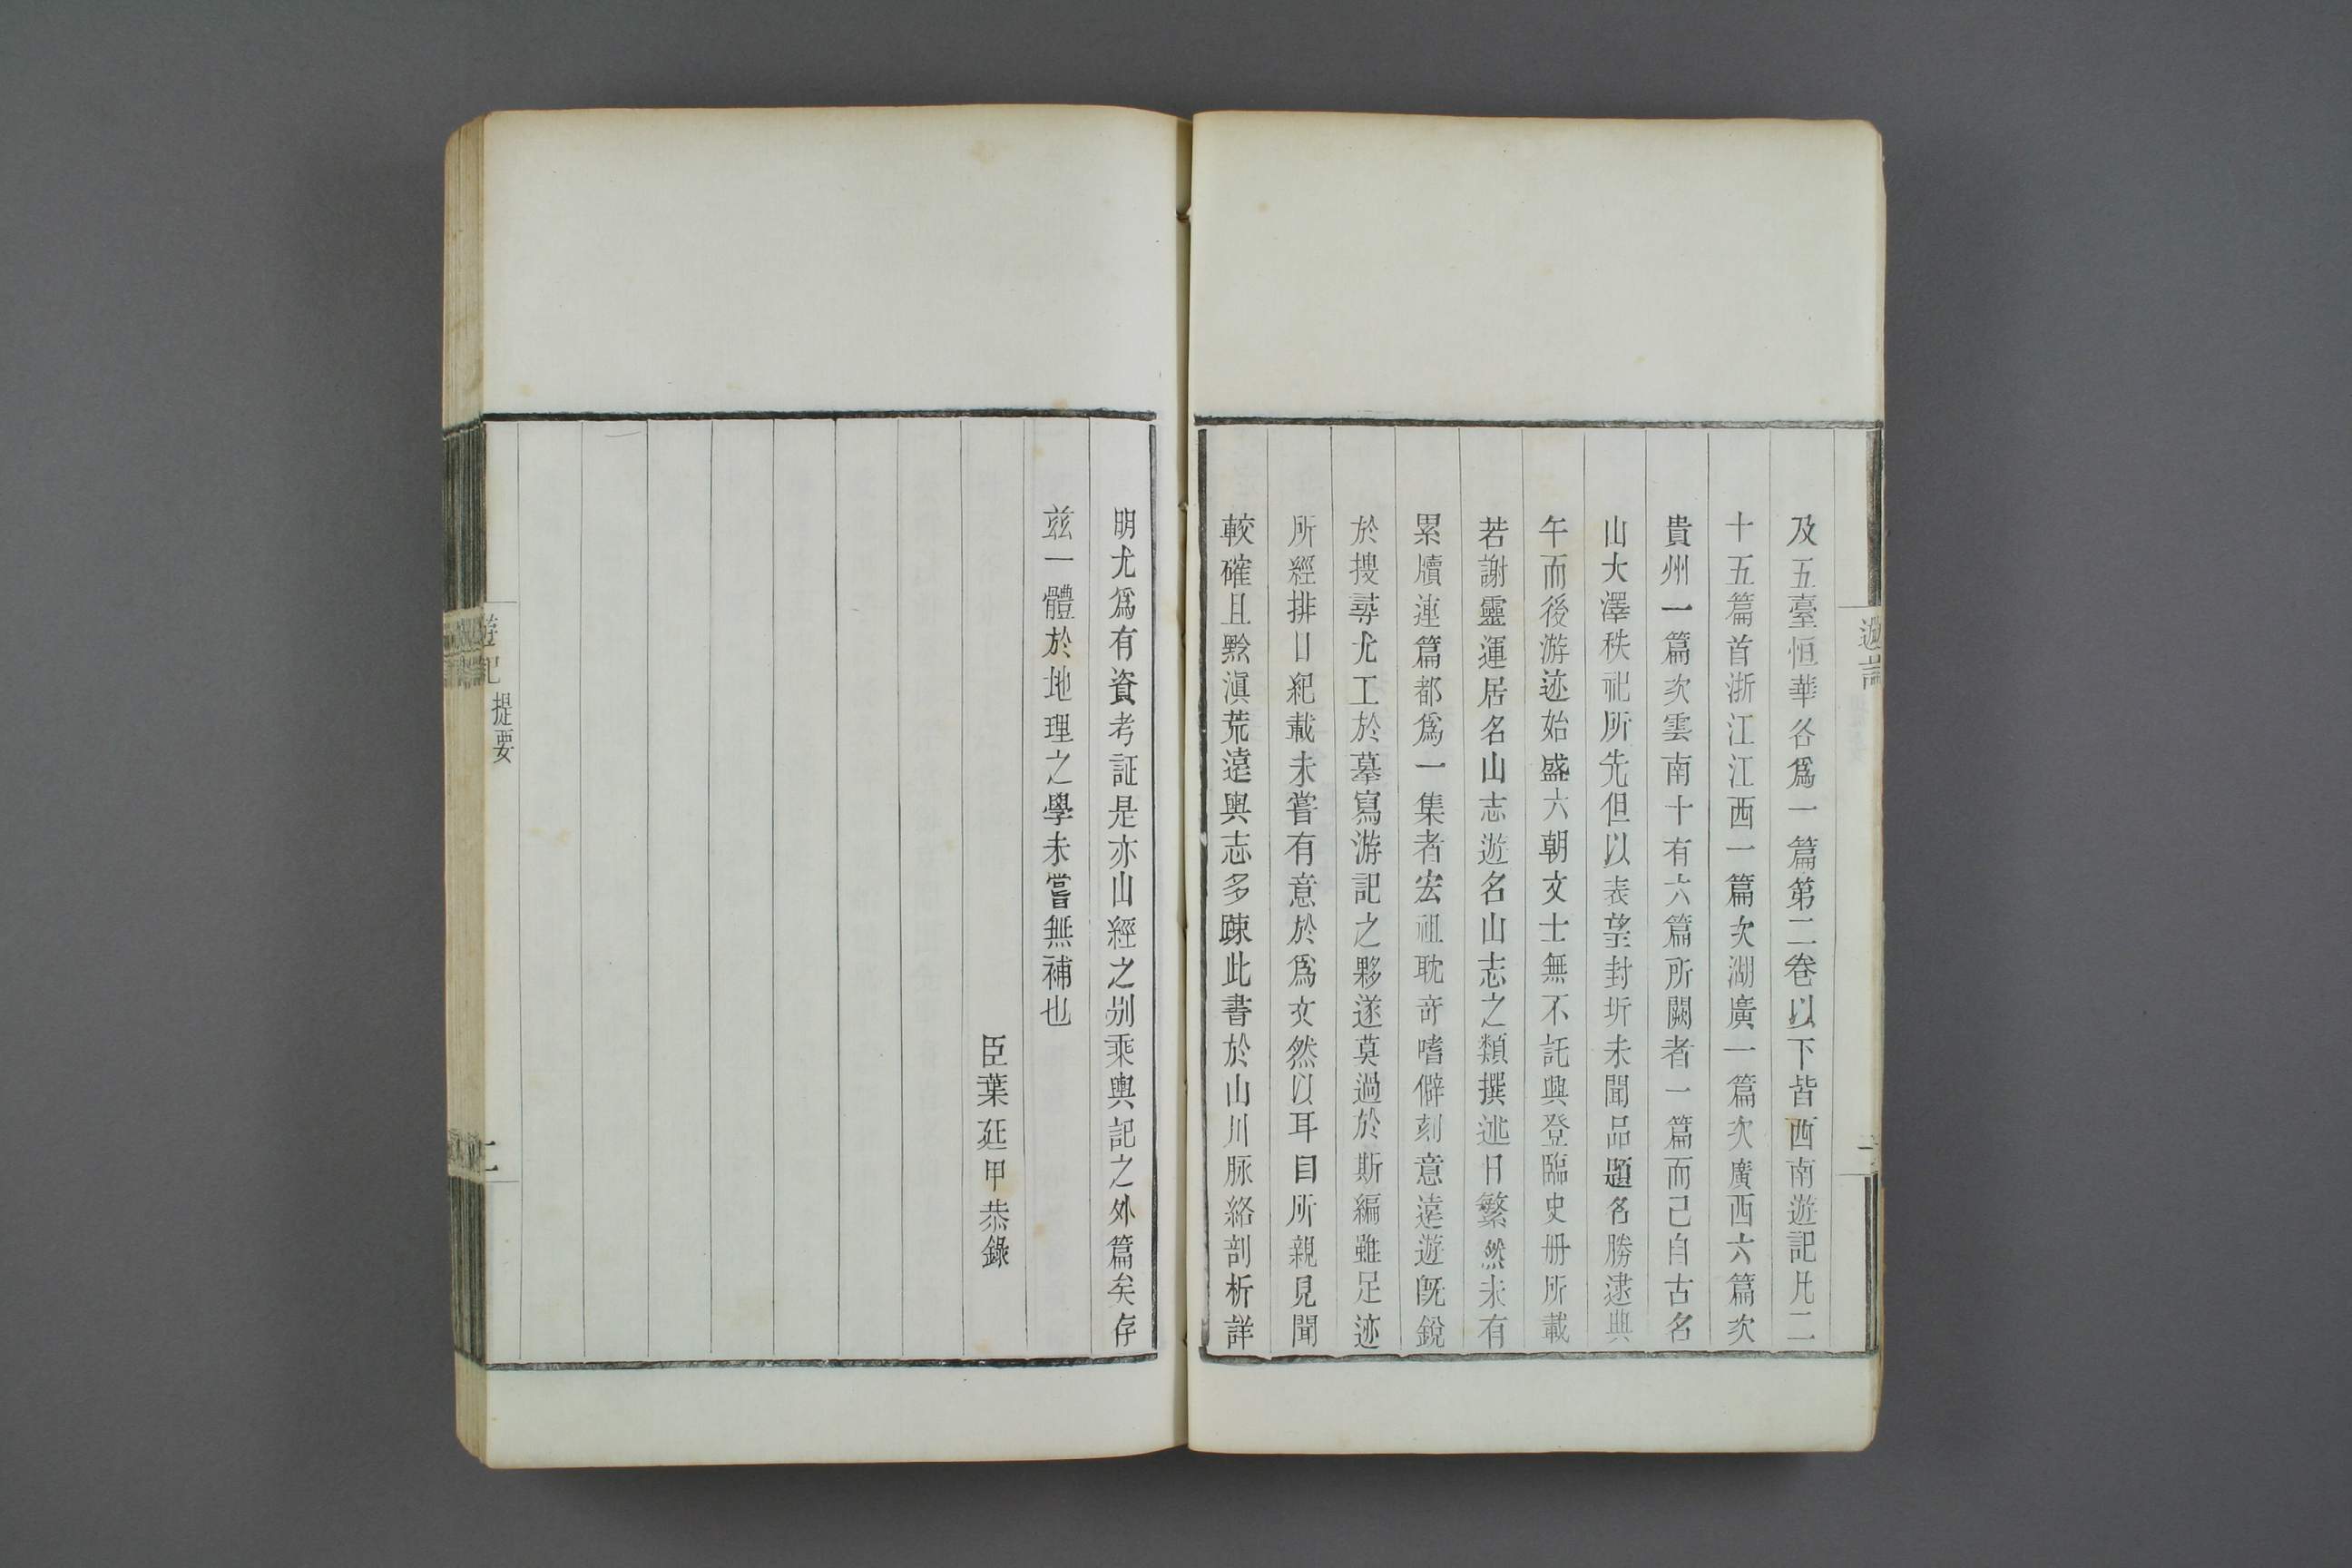 及五臺恒華各爲一篇第二卷以下皆西南遊記凡二
十五篇首浙江江西一篇次湖廣一篇次廣西六篇次
貴州一篇次雲南十有六篇所闕者一篇而已自古名
山大澤秩祀所先但以表望封圻未聞品題名勝逮典
午而後游迹始盛六朝文士無不託興登臨史册所載
若謝靈運居名山志遊名山志之類撰述日繁然未有
累牘連篇都爲一集者宏祖耽奇嗜僻刻意遠遊旣銳
於搜尋尤工於摹寫游記之夥遂莫過於斯編雖足迹
所經排日紀載未嘗有意於爲文然以耳目所親見聞
較確且黔滇荒遠輿志多疎此書於山川脈絡剖析詳
明尤爲有資考証是亦山經之别乘輿記之外篇矣存
兹一體於地理之學未嘗無補也
臣葉廷甲恭錄
遊記
提要
二